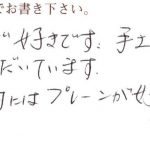 でお書き下さい。
好きです。手土
だいています。
にはプレーンが好